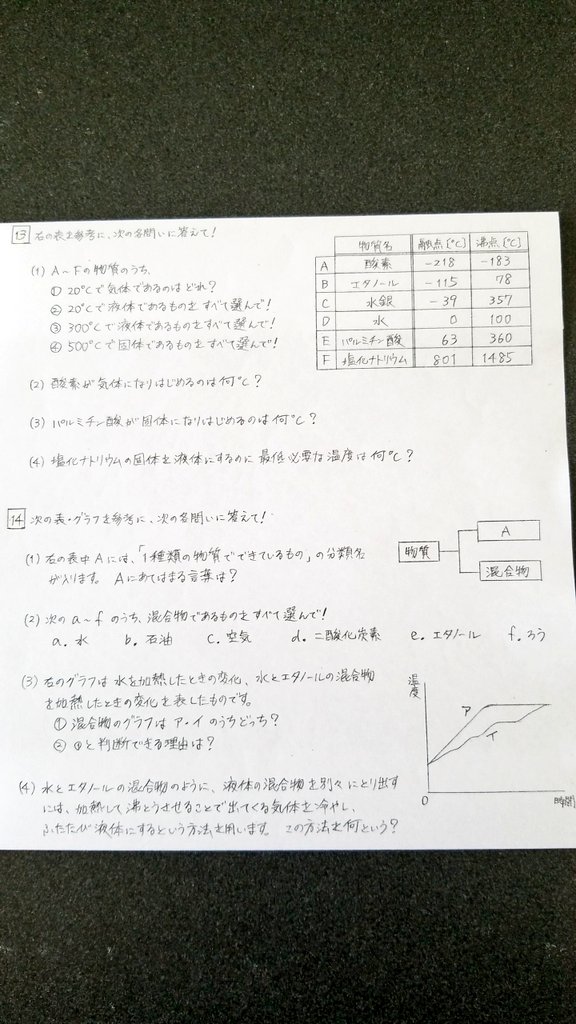 13 右の表を参考に、次の各問いに答えて！
物質名 融点〔℃〕 沸点〔℃〕
A 酸素 -218 -183
B エタノール -115 78
C 水銀 -39 357
D 水 0 100
E パルミチン酸 63 360
F 塩化ナトリウム 801 1485
(1) A～Fの物質のうち、
① 20℃で気体であるのはどれ？
② 20℃で液体であるものをすべて選んで！
③ 300℃で液体であるものをすべて選んで！
④ 500℃で固体であるものをすべて選んで！
(2) 酸素が気体になりはじめるのは何℃？
(3) パルミチン酸が固体になりはじめるのは何℃？
(4) 塩化ナトリウムの固体を液体にするのに最低必要な温度は何℃？
14 次の表・グラフを参考に、次の各問いに答えて！
(1) 右の表中Aには、「1種類の物質でできているもの」の分類名
が入ります。Aにあてはまる言葉は？
物質
A
混合物
(2) 次のa～fのうち、混合物であるものをすべて選んで！
a. 水 b. 石油 c. 空気 d. 二酸化炭素 e. エタノール f. ろう
(3) 右のグラフは水を加熱したときの変化、水とエタノールの混合物
を加熱したときの変化を表したものです。
① 混合物のグラフはア・イのうちどっち？
② ①と判断できる理由は？
温度
ア
イ
0
時間
(4) 水とエタノールの混合物のように、液体の混合物を別々にとり出す
には、加熱して沸とうさせることで出てくる気体を冷やし、
ふたたび液体にするという方法を用います。この方法を何という？